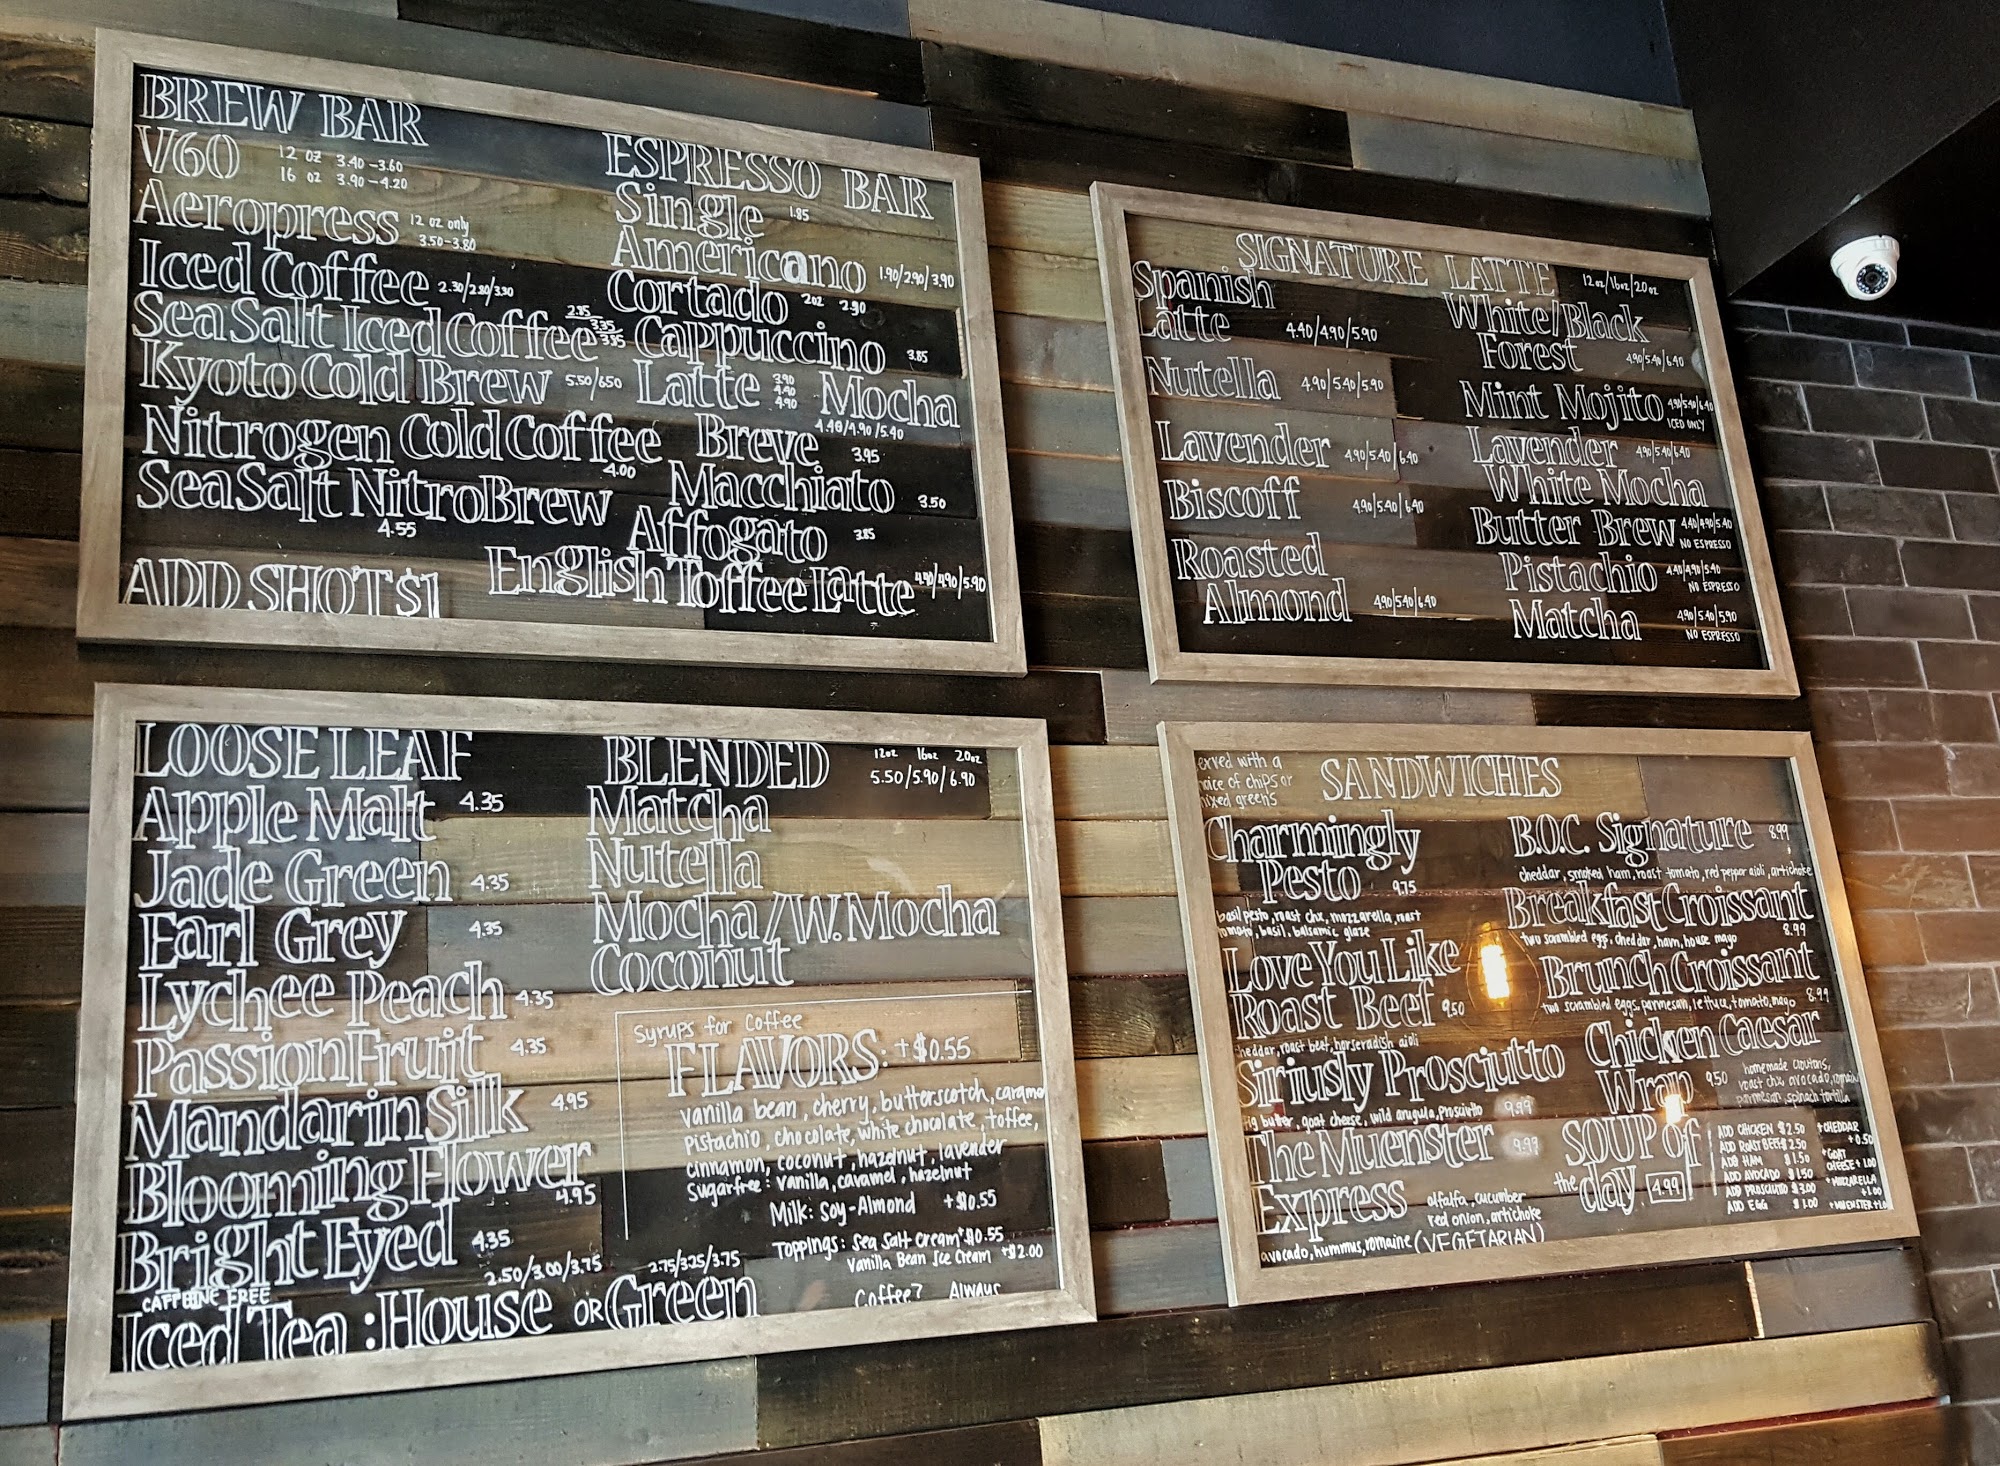 BREW BAR
V60 12 oz 3.40-3.60
16 oz 3.90-4.20
Aeropress 12 oz only
3.50-3.80
Iced Coffee 2.30/2.80/3.30
Sea Salt Iced Coffee 2.85
3.35
3.85
Kyoto Cold Brew 5.50/6.50
Nitrogen Cold Coffee
4.00
Sea Salt Nitro Brew
4.55
ADD SHOT $1
ESPRESSO BAR
Single 1.85
Americano 1.90/2.90/3.90
Cortado 2oz 2.90
Cappuccino 3.85
Latte 3.90
4.40
4.90
Mocha
4.40/4.90/5.40
Breve 3.95
Macchiato 3.50
Affogato 3.85
English Toffee Latte 4.40/4.90/5.90
SIGNATURE LATTE 12oz/16oz/20oz
Spanish
Latte 4.40/4.90/5.90
Nutella 4.90/5.40/5.90
Lavender 4.90/5.40/6.40
Biscoff 4.90/5.40/6.40
Roasted
Almond 4.90/5.40/6.40
White/Black
Forest 4.90/5.40/6.40
Mint Mojito 4.90/5.40/6.40
ICED ONLY
Lavender 4.90/5.40/6.40
White Mocha
Butter Brew 4.40/4.90/5.40
NO ESPRESSO
Pistachio 4.40/4.90/5.40
NO ESPRESSO
Matcha 4.90/5.40/5.90
NO ESPRESSO
LOOSE LEAF
Apple Malt 4.35
Jade Green 4.35
Earl Grey 4.35
Lychee Peach 4.35
Passion Fruit 4.35
Mandarin Silk 4.95
Blooming Flower
4.95
Bright Eyed 4.35
CAFFEINE FREE
2.50/3.00/3.75 2.75/3.25/3.75
Iced Tea: House OR Green
BLENDED 12oz 16oz 20oz
5.50/5.90/6.90
Matcha
Nutella
Mocha/W. Mocha
Coconut
Syrups for Coffee
FLAVORS: +$0.55
vanilla bean, cherry, butterscotch, caramel
pistachio, chocolate, white chocolate, toffee,
cinnamon, coconut, hazelnut, lavender
Sugarfree: vanilla, caramel, hazelnut
Milk: Soy-Almond +$0.55
Toppings: Sea Salt Cream +$0.55
Vanilla Bean Ice Cream +$2.00
Coffee? Always
erved with a
oice of chips or
mixed greens
SANDWICHES
Charmingly
Pesto 9.75
basil pesto, roast chx, mozzarella, roast
tomato, basil, balsamic glaze
Love You Like
Roast Beef 9.50
heddar, roast beef, horseradish aioli
Siriusly Prosciutto
ig butter, goat cheese, wild arugula, prosciutto 9.99
The Muenster 9.99
Express alfalfa, cucumber
red onion, artichoke
avocado, hummus, romaine (VEGETARIAN)
B.O.C. Signature 8.99
cheddar, smoked ham, roast tomato, red pepper aioli, artichoke
Breakfast Croissant
two scrambled eggs, cheddar, ham, house mayo 8.99
Brunch Croissant
two scrambled eggs, parmesan, lettuce, tomato, mayo 8.99
Chicken Caesar
Wrap 9.50 homemade croutons,
roast chx, avocado, romaine
parmesan, spinach tortilla
SOUP of
the day 4.99
ADD CHICKEN $2.50
ADD ROAST BEEF $2.50
ADD HAM $1.50
ADD AVOCADO $1.50
ADD PROSCIUTTO $3.00
ADD EGG $1.00
+CHEDDAR
+0.50
+GOAT
CHEESE +1.00
+MOZZARELLA
+1.00
+MUENSTER +1.00